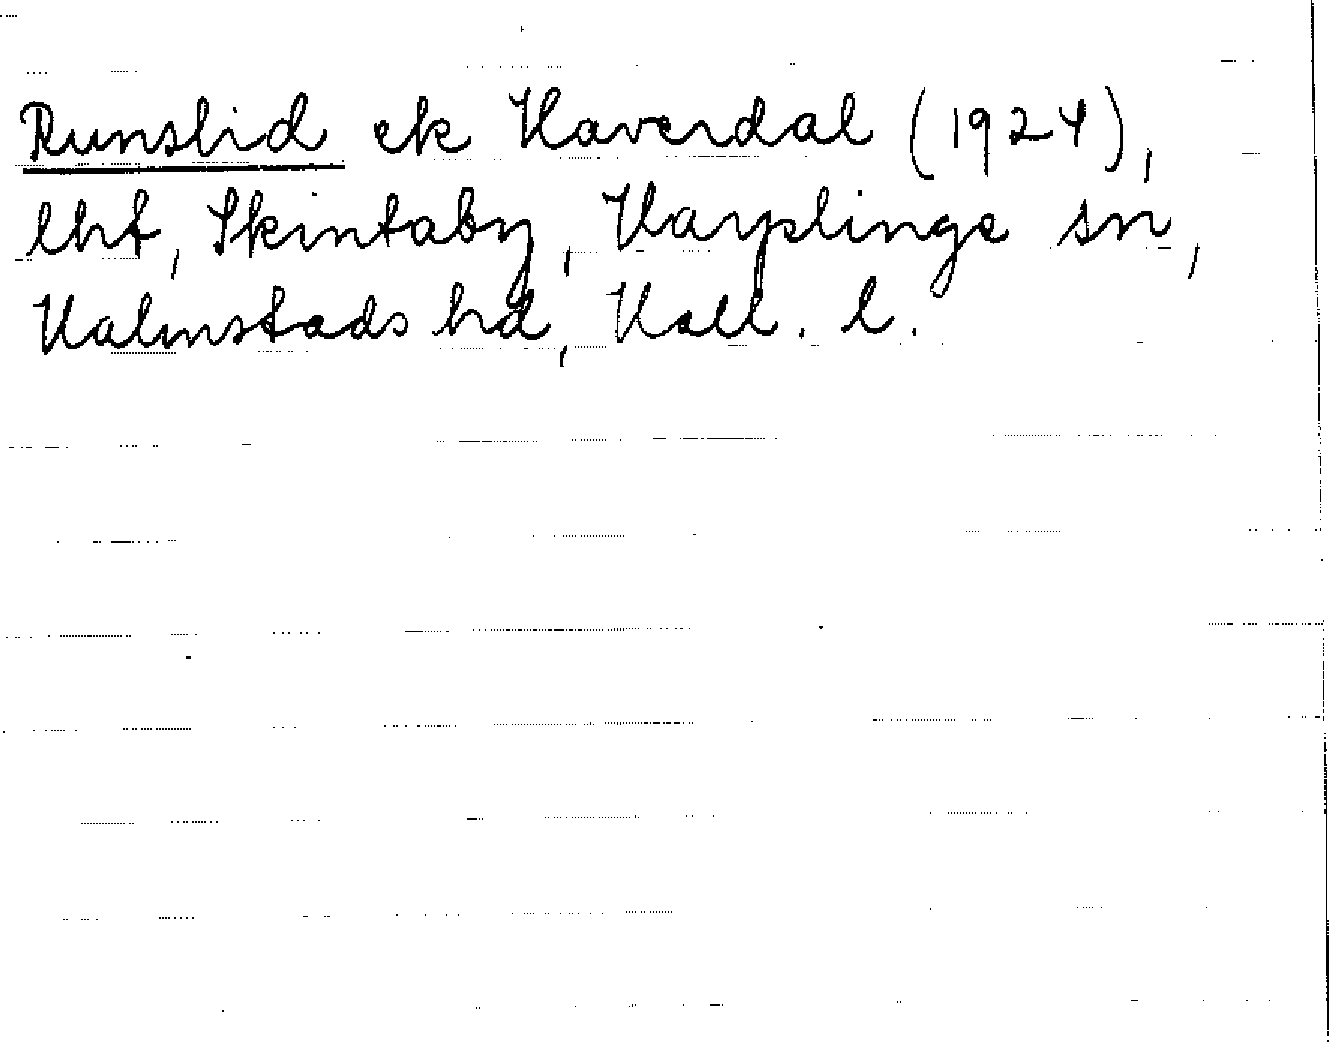 Runslid ek Haverdal (1924),
lht, Skintaby, Harplinge sn,
Halmstads hd, Hall. l.